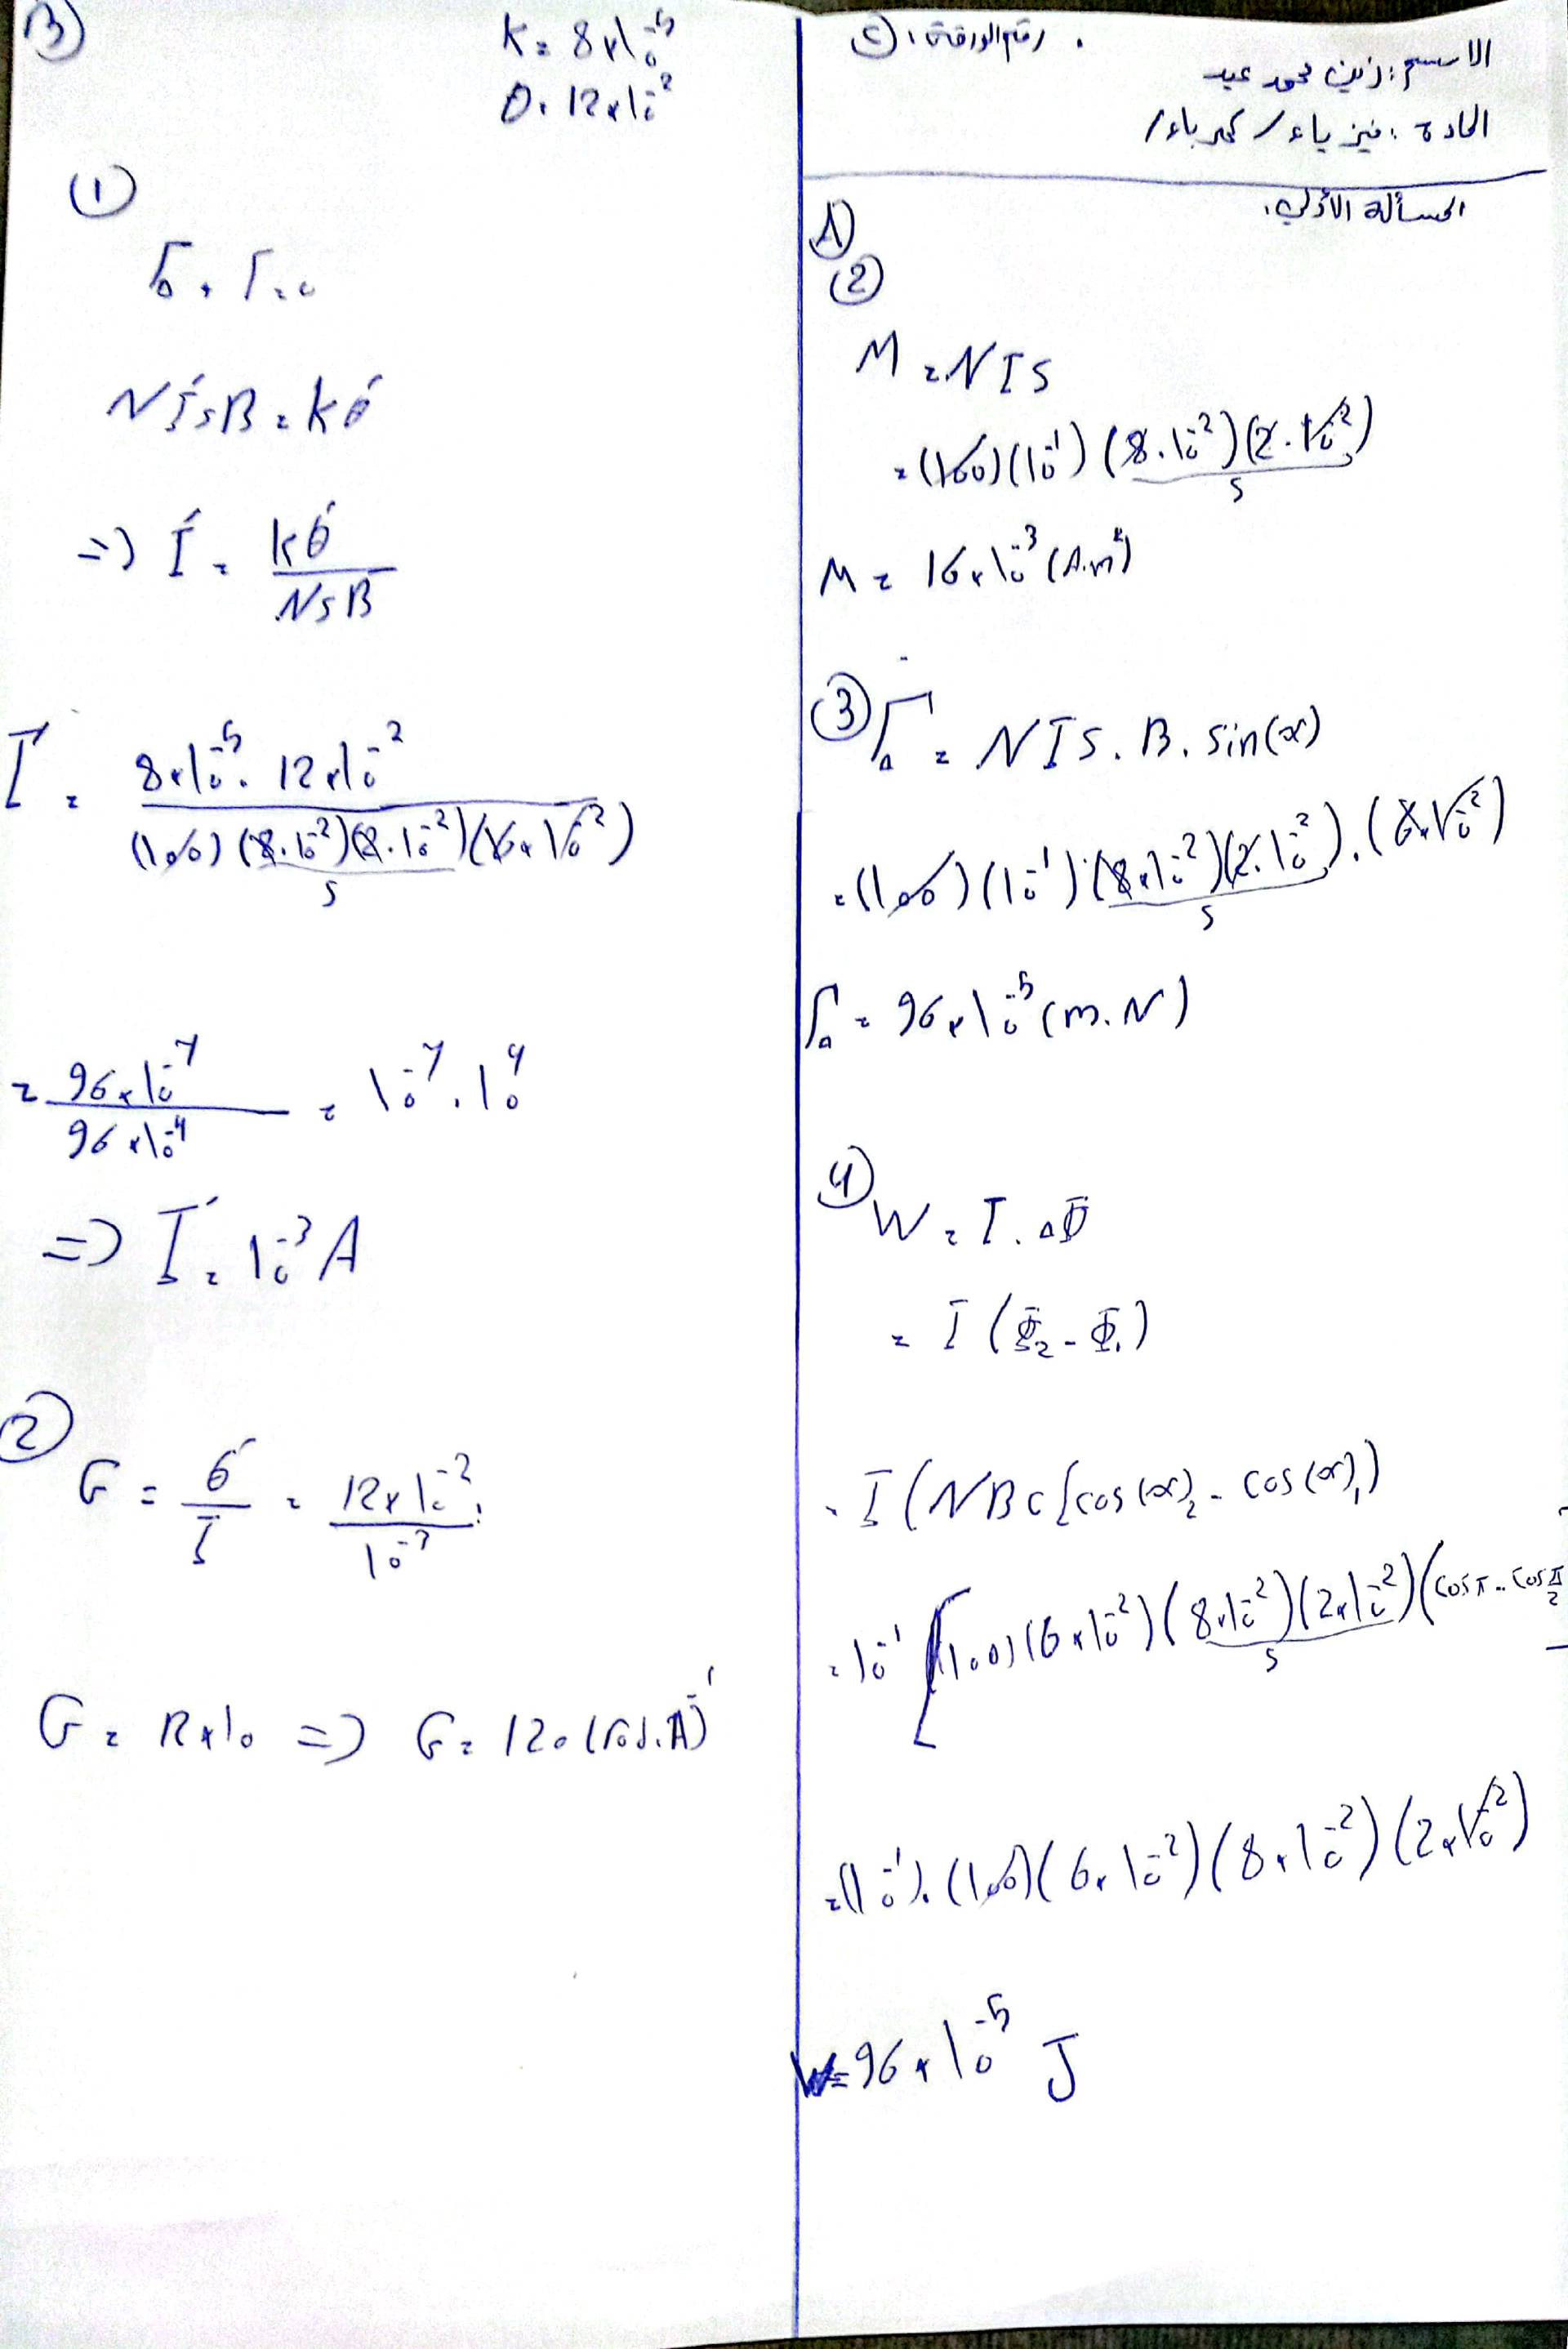 الاسم: زين محمد عيد
رقم الورقة: ②
المادة: فيزياء / كهرباء /
المسألة الأولى:
A)
②
M = N I S
= (100)(10⁻¹)(8.10⁻²)(2.10⁻²)
S
M = 16×10⁻³ (A.m²)
③ Γ_Δ = N I S . B . sin(α)
= (100)(10⁻¹)(8×10⁻²)(2.10⁻²).(6×10⁻²)
S
Γ_Δ = 96×10⁻⁵ (m.N)
④
W = I . ΔΦ
= I (Φ₂ - Φ₁)
= I (N B S [cos(α)₂ - cos(α)₁)
= 10⁻¹ [(100)(6×10⁻²)(8×10⁻²)(2×10⁻²)(cos π - cos π/2
S
= (10⁻¹).(100)(6×10⁻²)(8×10⁻²)(2×10⁻²)
W = 96×10⁻⁵ J
B)
K = 8×10⁻⁵
θ = 12×10⁻²
①
Γ_Δ + Γ = 0
N I′ S B = K θ′
=> I′ = Kθ′ / NSB
I′ = 8×10⁻⁵ . 12×10⁻² / (100)(8.10⁻²)(2.10⁻²)(6×10⁻²)
S
= 96×10⁻⁷ / 96×10⁻⁴ = 10⁻⁷ . 10⁴
=> I′ = 10⁻³ A
②
G = θ′ / I = 12×10⁻² / 10⁻³
G = 12×10 => G = 120 (rad.A⁻¹)